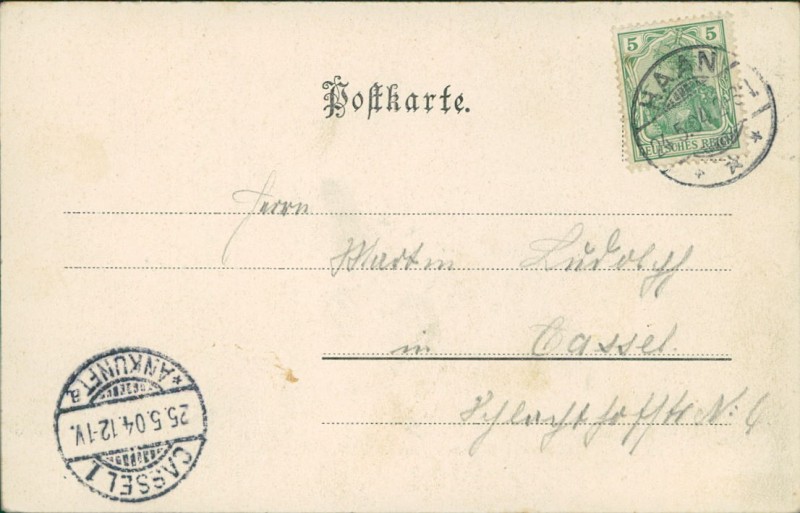 Postkarte.
5 5
DEUTSCHES REICH
HAAN
5.04
Herrn
Martin Ludolph
in Cassel.
Schlachthofstr N: 6
*ANKUNFT a
25.5.04.12-1V.
CASSEL 1